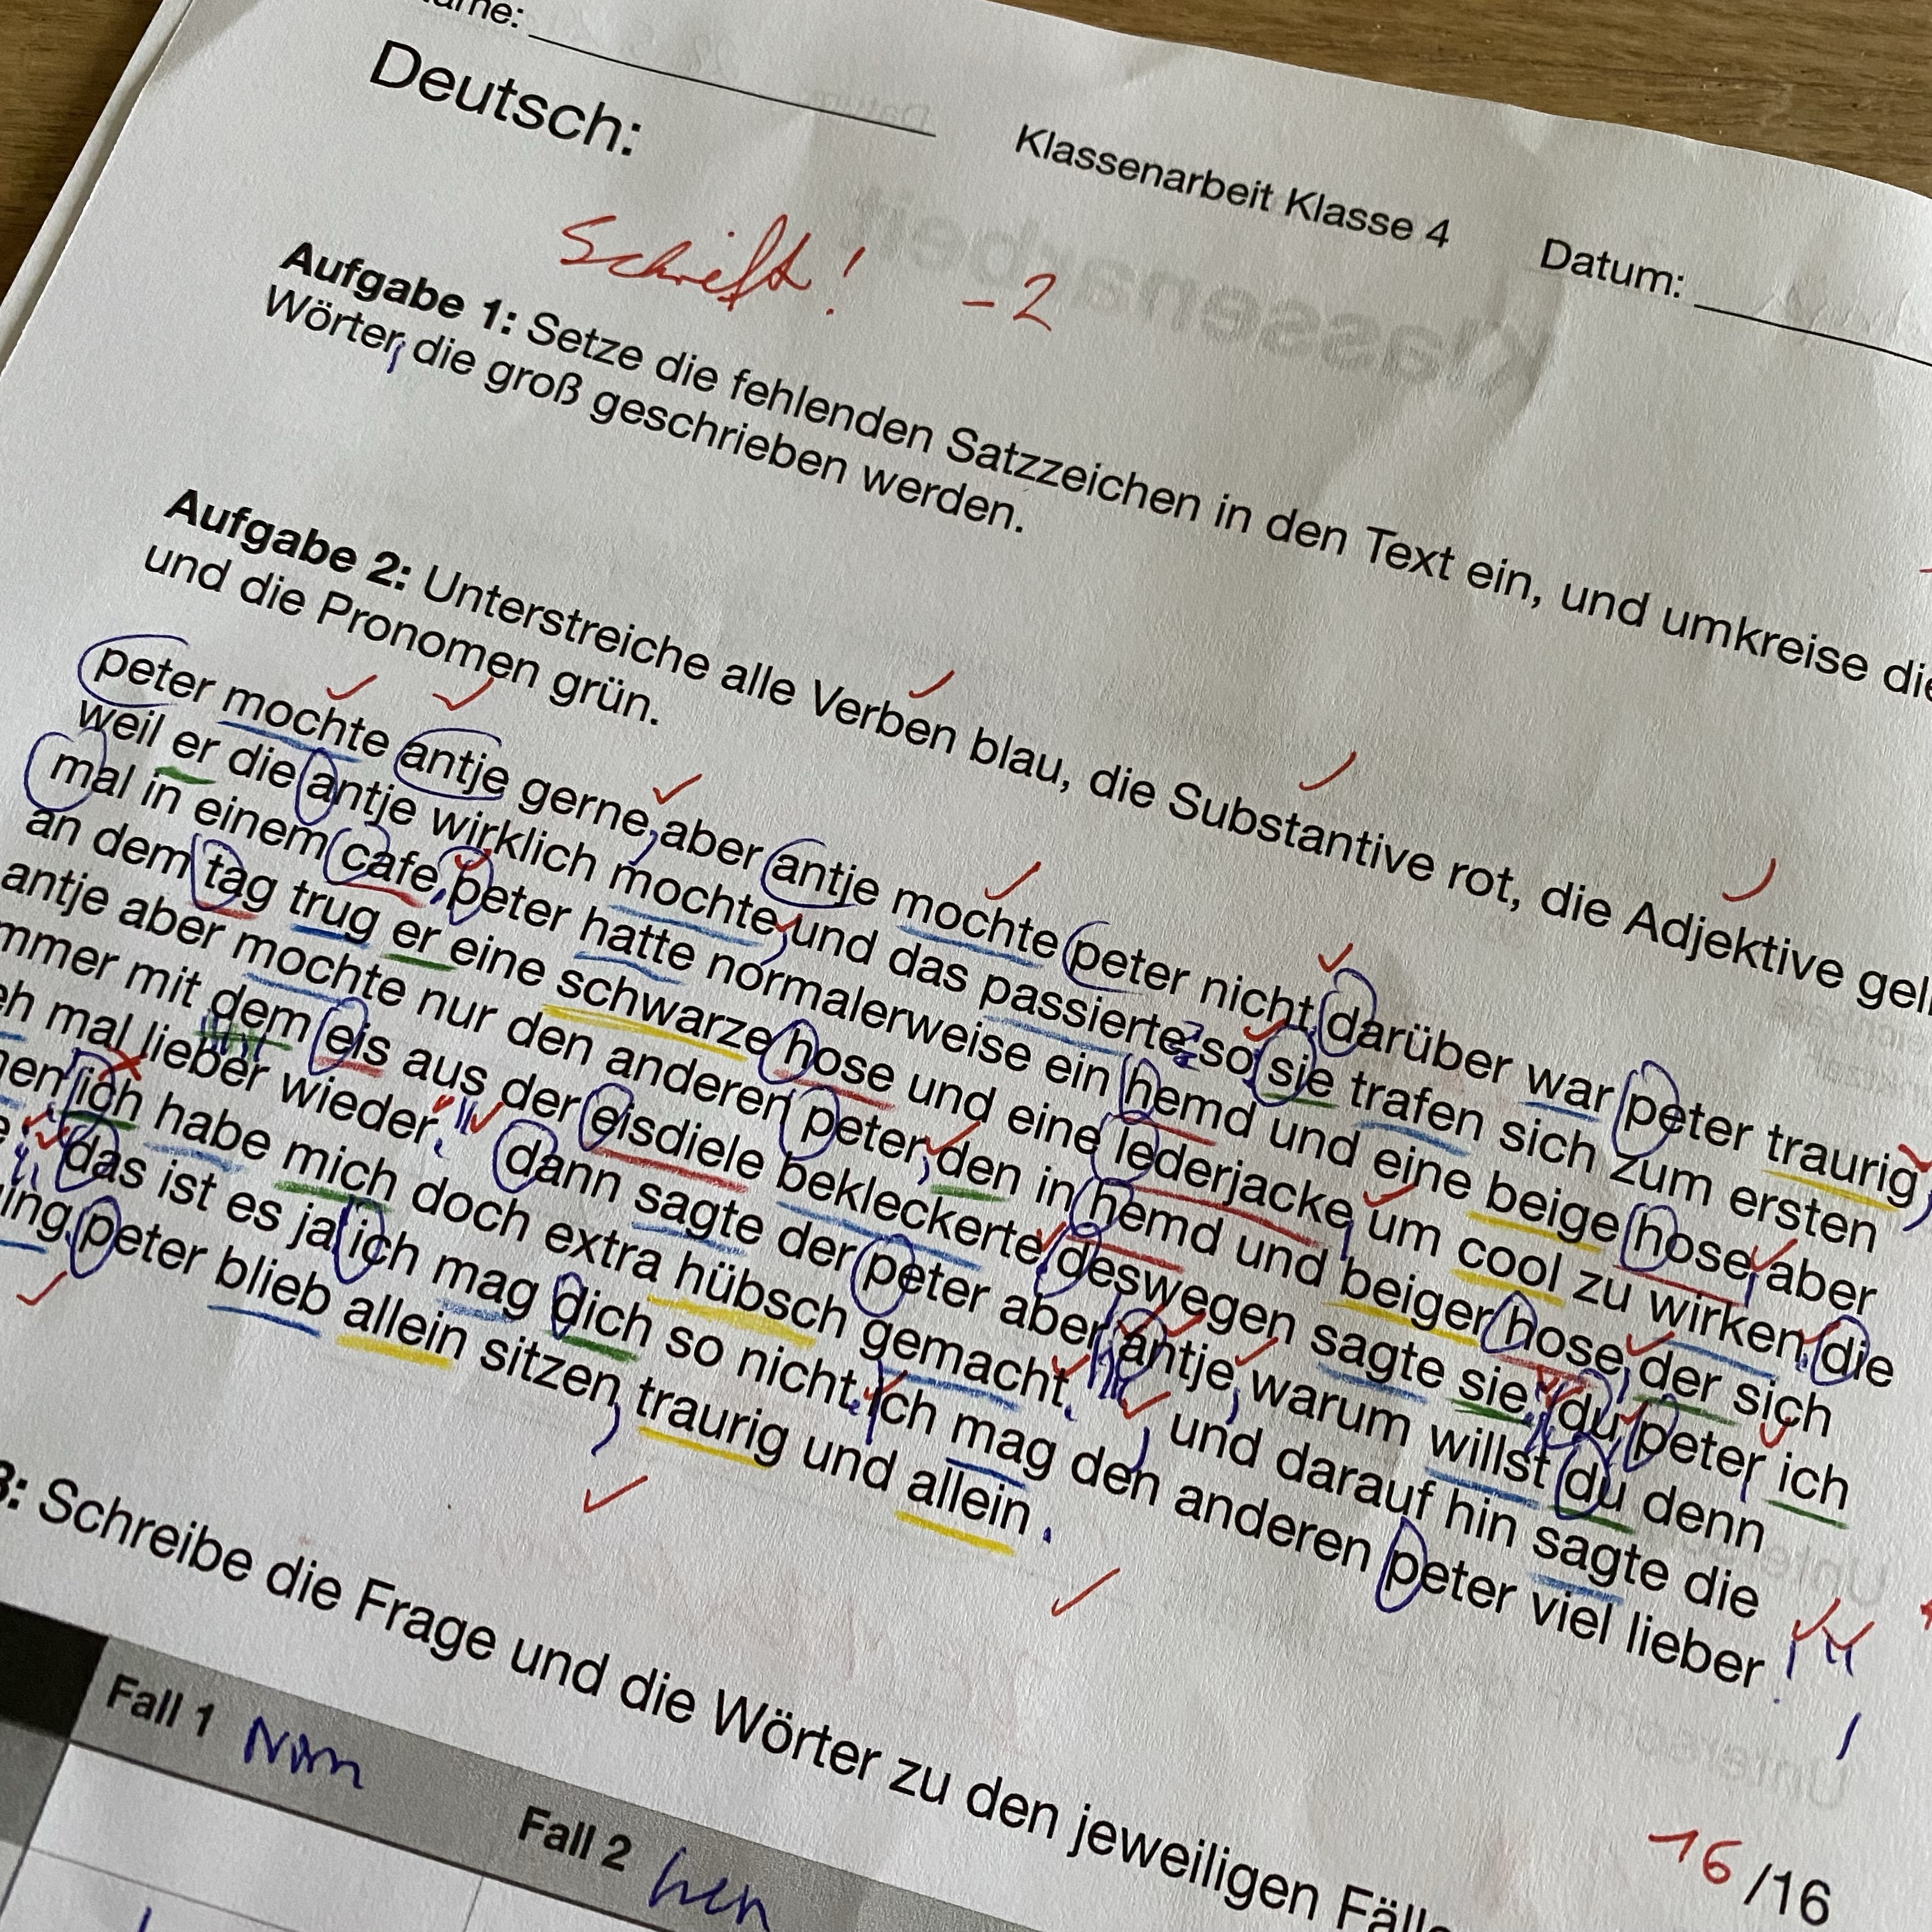 Deutsch:
Klassenarbeit Klasse 4
Datum:
Schrift! -2
Aufgabe 1: Setze die fehlenden Satzzeichen in den Text ein, und umkreise die
Wörter, die groß geschrieben werden.
Aufgabe 2: Unterstreiche alle Verben blau, die Substantive rot, die Adjektive
und die Pronomen grün.
peter mochte antje gerne, aber antje mochte peter nicht, darüber war peter traurig,
weil er die antje wirklich mochte, und das passierte so: sie trafen sich zum ersten
mal in einem cafe, peter hatte normalerweise ein hemd und eine beige hose, aber
an dem tag trug er eine schwarze hose und eine lederjacke, um cool zu wirken. die
antje aber mochte nur den anderen peter, den in hemd und beiger hose, der sich
mit dem eis aus der eisdiele bekleckerte, deswegen sagte sie: "du, peter, ich
mal lieber wieder." dann sagte der peter aber: "antje, warum willst du denn
ich habe mich doch extra hübsch gemacht." und darauf hin sagte die
das ist es ja, ich mag dich so nicht. ich mag den anderen peter viel lieber!"
peter blieb allein sitzen, traurig und allein.
3: Schreibe die Frage und die Wörter zu den jeweiligen
Fall 1 Nom
Fall 2 hen
16/16